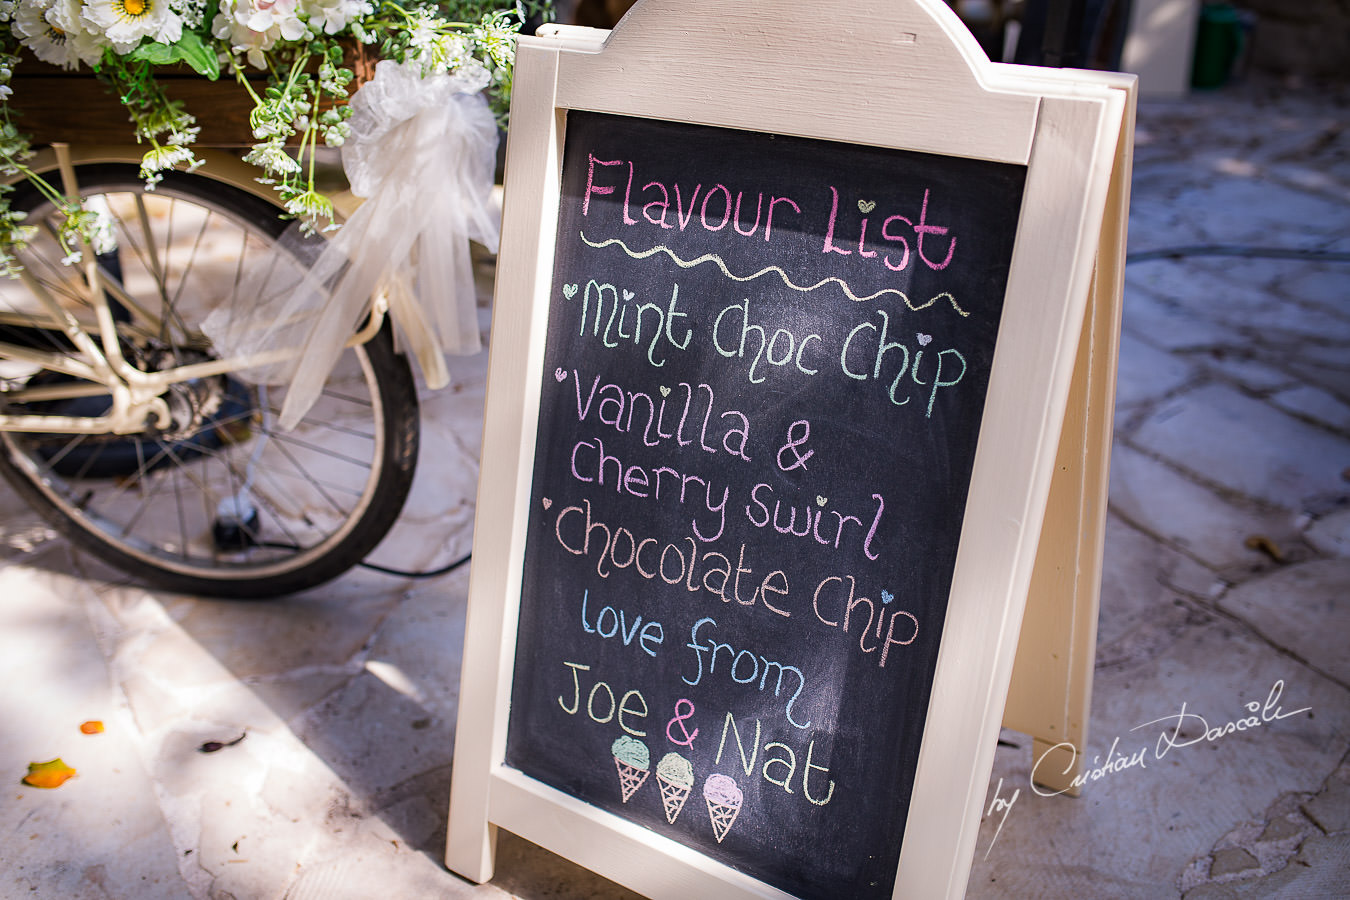 Flavour List
Mint Choc Chip
Vanilla &
Cherry Swirl
Chocolate Chip
Love from
Joe & Nat
by Cristian Dascălu